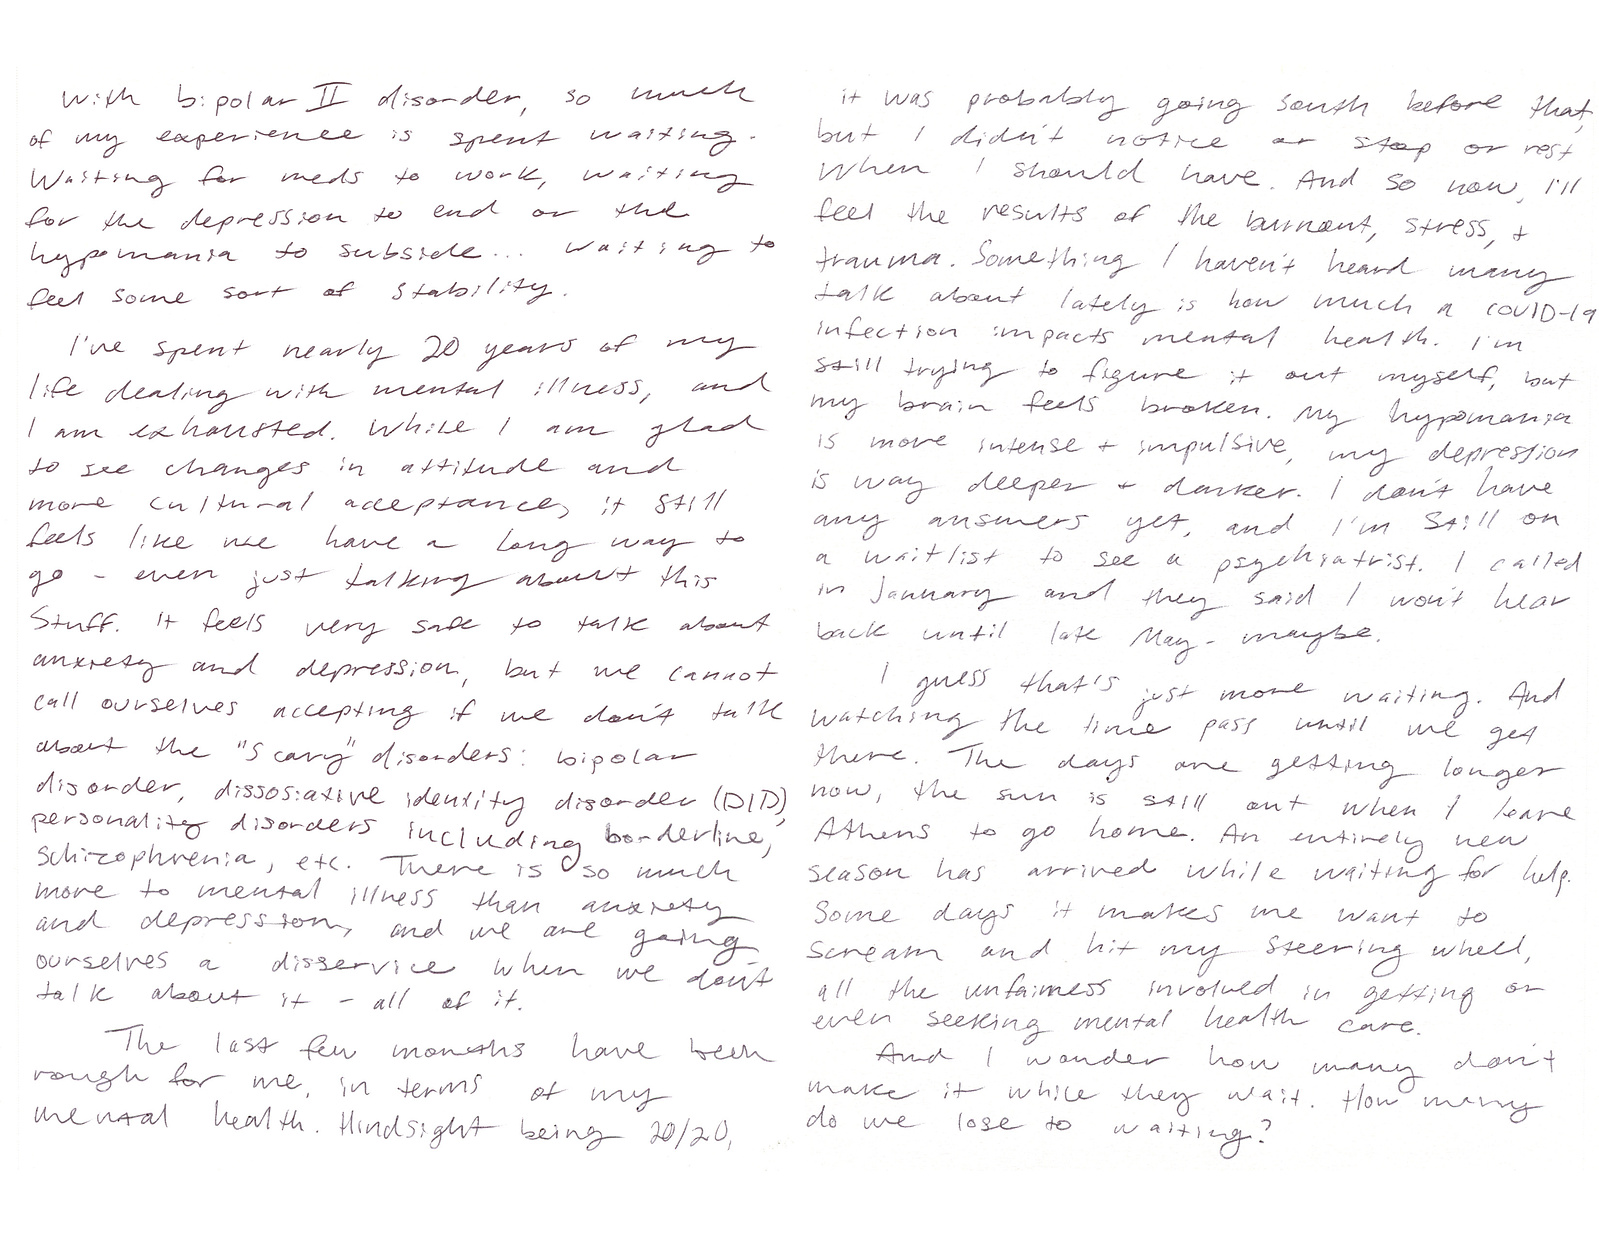 With bipolar II disorder, so much
of my experience is spent waiting.
Waiting for meds to work, waiting
for the depression to end or the
hypomania to subside... waiting to
feel some sort of stability.
I've spent nearly 20 years of my
life dealing with mental illness, and
I am exhausted. While I am glad
to see changes in attitude and
more cultural acceptance, it still
feels like we have a long way to
go - even just talking about this
stuff. It feels very safe to talk about
anxiety and depression, but we cannot
call ourselves accepting if we don't talk
about the "scary" disorders: bipolar
disorder, dissosiative identity disorder (DID),
personality disorders including borderline,
schizophrenia, etc. There is so much
more to mental illness than anxiety
and depression, and we are going
ourselves a disservice when we don't
talk about it - all of it.
The last few months have been
rough for me, in terms of my
mental health. Hindsight being 20/20,
it was probably going south before that,
but I didn't notice or stop or rest
when I should have. And so now, I'll
feel the results of the burnout, stress, +
trauma. Something I haven't heard many
talk about lately is how much a COVID-19
infection impacts mental health. I'm
still trying to figure it out myself, but
my brain feels broken. My hypomania
is more intense + impulsive, my depression
is way deeper + darker. I don't have
any answers yet, and I'm still on
a waitlist to see a psychiatrist. I called
in January and they said I won't hear
back until late May - maybe.
I guess that's just more waiting. And
watching the time pass until we get
there. The days are getting longer
now, the sun is still out when I leave
Athens to go home. An entirely new
season has arrived while waiting for help.
Some days it makes me want to
scream and hit my steering wheel,
all the unfairness involved in getting or
even seeking mental health care.
And I wonder how many don't
make it while they wait. How many
do we lose to waiting?